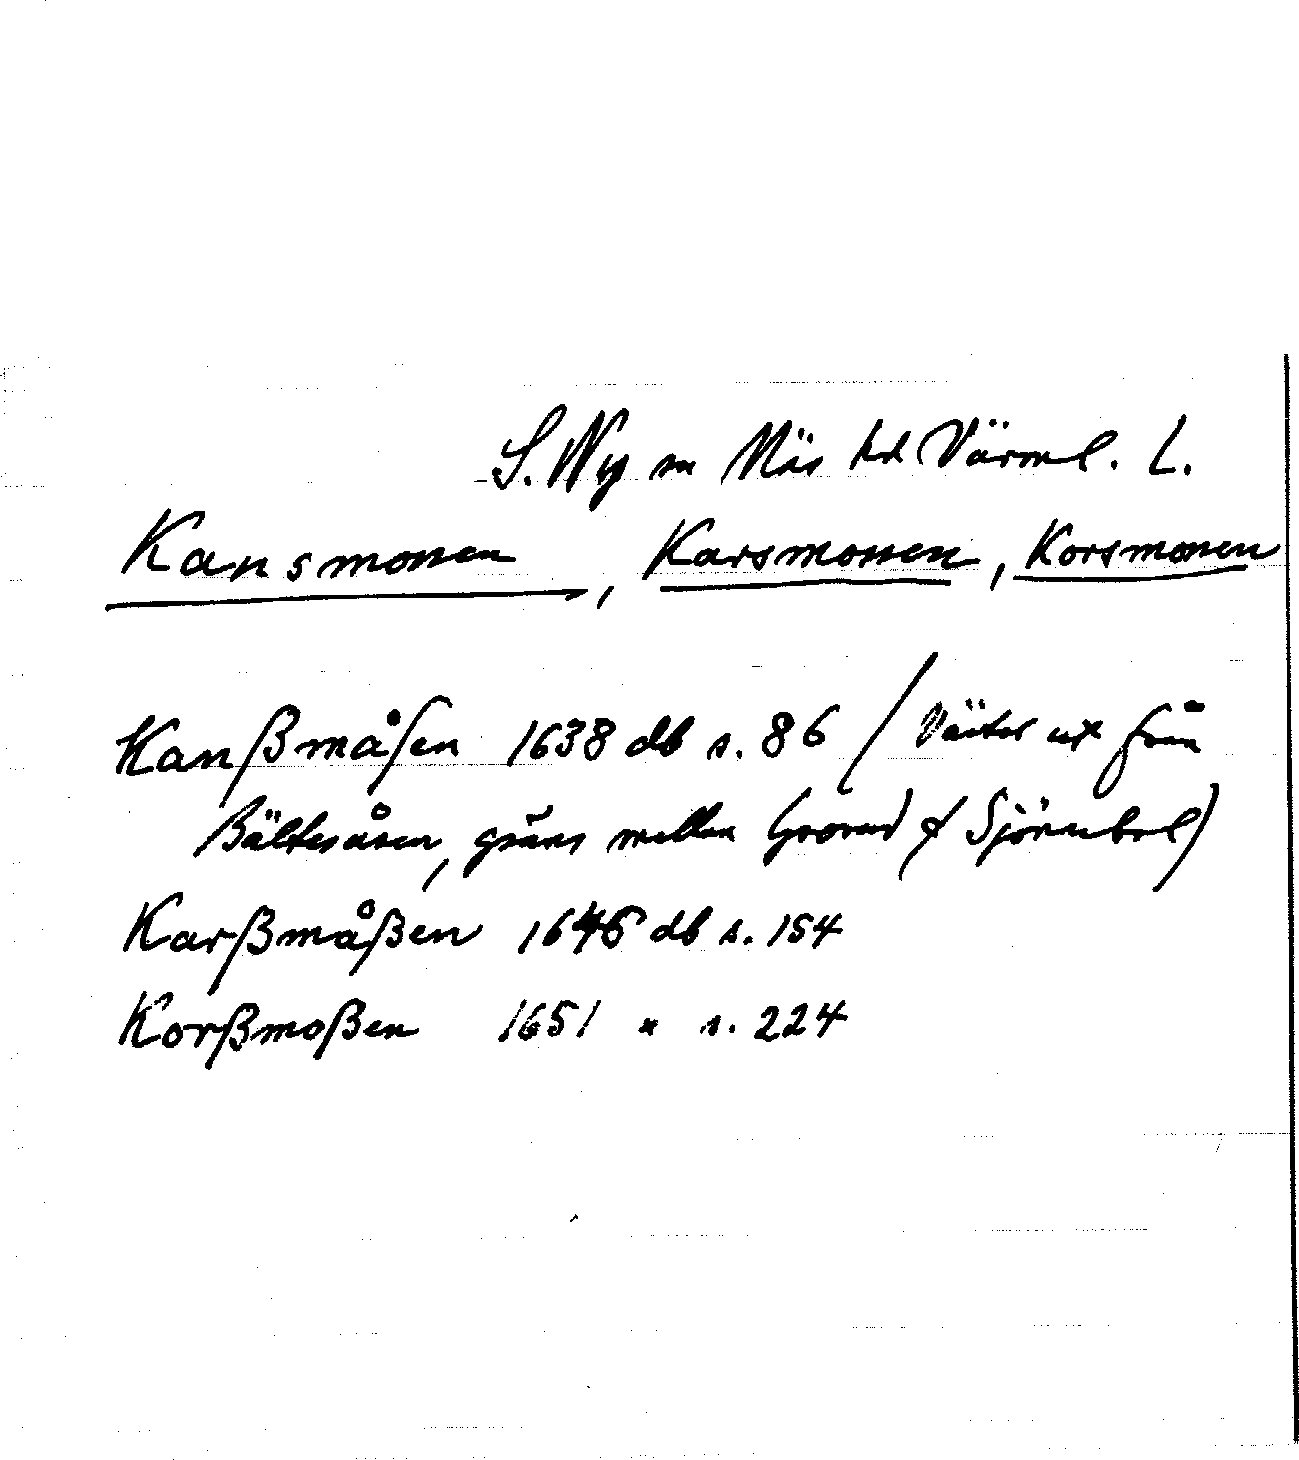 S. Ny sn Näs hd Värml. L.
Kansmossen, Karsmossen, Korsmossen
Kanßmåſen 1638 db s. 86 (Väster ut från
Bältesåsen, gräns mellan &
Karßmåßen 1646 db s. 154
Korßmoßen 1651 " s. 224